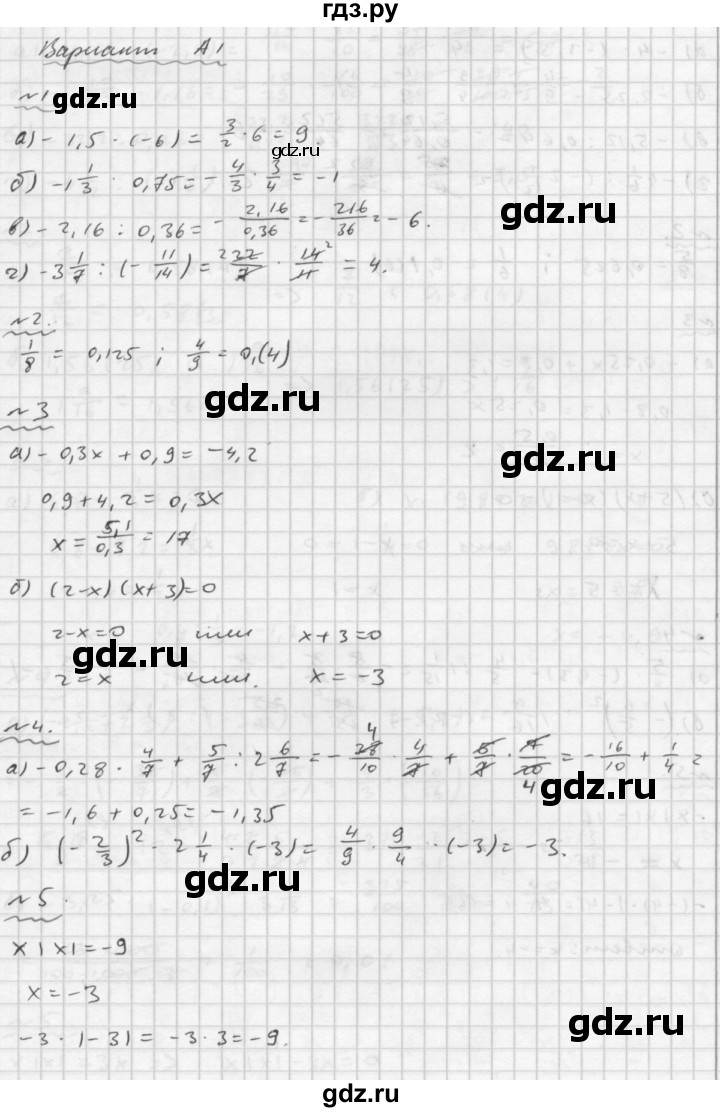 гдз.ру
Вариант А1
№1
gdz.ru
а) - 1,5 · (-6) = 3/2 · 6 = 9.
gdz.ru
б) -1 1/3 · 0,75 = - 4/3 · 3/4 = -1
gdz.ru
в) - 2,16 : 0,36 = - 2,16/0,36 = - 216/36 = - 6.
г) -3 1/7 : (- 11/14) = 2 22/7 · 14/11 2 = 4.
№2.
1/8 = 0,125 ; 4/9 = 0,(4)
gdz.ru
№3
а) - 0,3x + 0,9 = -4,2
gdz.ru
0,9 + 4,2 = 0,3x
x = 5,1/0,3 = 17
б) (2-x) (x+3) = 0
2-x=0 или x+3=0
gdz.ru
2 = x или. x = -3
№4.
а) - 0,28 · 4/7 + 5/7 : 2 6/7 = - 4 28/10 · 4/7 + 5/7 · 7/20 4 = - 16/10 + 1/4 =
gdz.ru
= -1,6 + 0,25 = -1,35
б) (- 2/3)² · 2 1/4 · (-3) = 4/9 · 9/4 · (-3) = -3.
gdz.ru
№5.
x |x| = -9
x = -3
gdz.ru
-3 · |-3| = -3 · 3 = -9.
gdz.ru